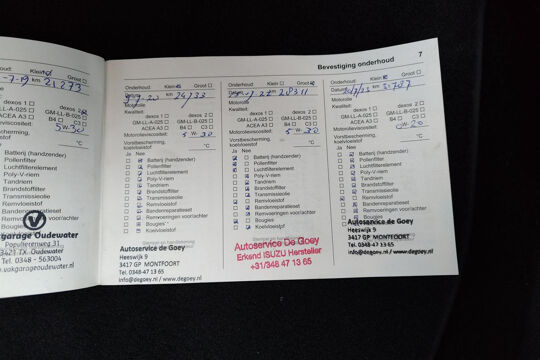 7
Bevestiging onderhoud
Onderhoud: Klein Groot
-7-19 km 21.273
dexos 1 dexos 2
GM-LL-A-025 GM-LL-B-025
ACEA A3 B4 C3
5W30
Voorbescherming,
°C
garage Oudewater
Populierenweg 31
3421 TX Oudewater
Tel. 0348 - 563004
vakgarageoudewater.nl
Onderhoud: Klein Groot
-20 km 24733
Motorolie
Kwaliteit:
dexos 1 dexos 2
GM-LL-A-025 GM-LL-B-025
ACEA A3 B4 C3
Motorolieviscositeit: 5W30
Vorstbescherming,
koelvloeistof °C
Ja Nee
Batterij (handzender)
Pollenfilter
Luchtfilterelement
Poly-V-riem
Tandriem
Brandstoffilter
Transmissieolie
Remvloeistof
Bandenreparatieset
Remvoeringen voor/achter
Bougies
Koelvloeistof
Autoservice de Goey
Heeswijk 9
3417 GP MONTFOORT
Tel. 0348-47 13 65
info@degoey.nl / www.degoey.nl
Onderhoud: Klein Groot
km 28311
Motorolie
Kwaliteit:
dexos 1 dexos 2
GM-LL-A-025 GM-LL-B-025
ACEA A3 B4 C3
Motorolieviscositeit: 5W30
Vorstbescherming,
koelvloeistof °C
Ja Nee
Batterij (handzender)
Pollenfilter
Luchtfilterelement
Poly-V-riem
Tandriem
Brandstoffilter
Transmissieolie
Remvloeistof
Bandenreparatieset
Remvoeringen voor/achter
Bougies
Koelvloeistof
Autoservice De Goey
Erkend ISUZU Hersteller
+31/348 47 13 65
Onderhoud: Klein Groot
Datum km
Motorolie
Kwaliteit:
dexos 1 dexos 2
GM-LL-A-025 GM-LL-B-025
ACEA A3 B4 C3
Motorolieviscositeit:
Vorstbescherming,
koelvloeistof °C
Ja Nee
Batterij (handzender)
Pollenfilter
Luchtfilterelement
Poly-V-riem
Tandriem
Brandstoffilter
Transmissieolie
Remvloeistof
Bandenreparatieset
Remvoeringen voor/achter
Bougies
Koelvloeistof
Autoservice de Goey
Heeswijk 9
3417 GP MONTFOORT
Tel. 0348-47 13 65
info@degoey.nl / www.degoey.nl